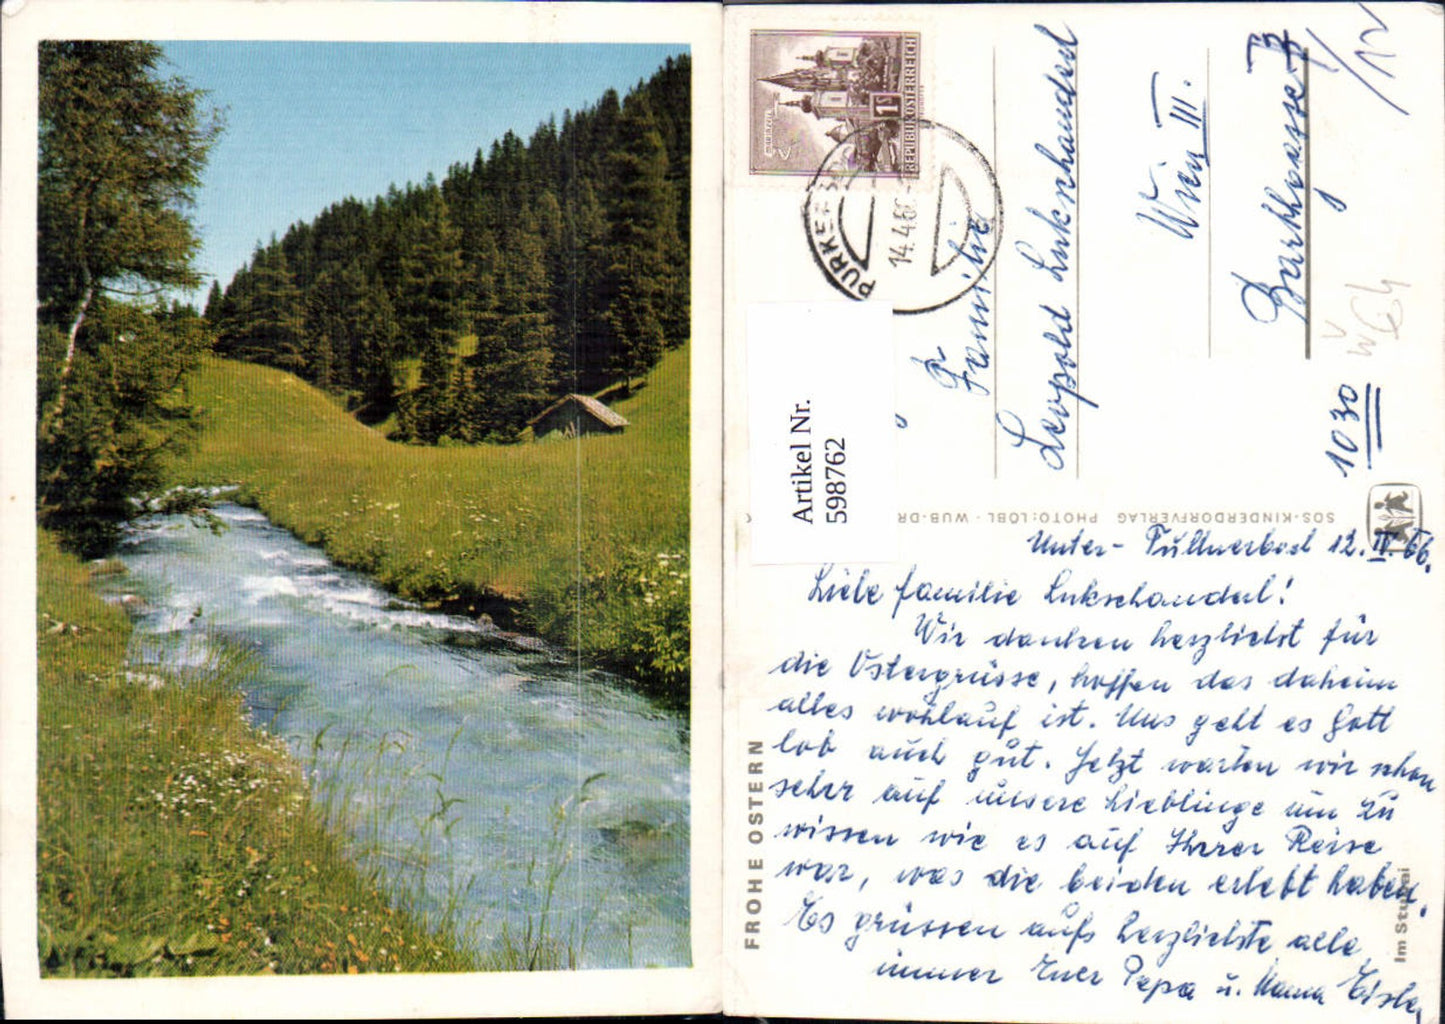 REPUBLIK ÖSTERREICH
MARIAZELL
1 S
PURKERS
14.4.66
Familie
Leopold Lukschanderl
Wien III.
Barthgasse
1/12
1030
Artikel Nr.
598762
SOS-KINDERDORFVERLAG PHOTO: LÖBL - WUB-DR
Unter-Tullnerbach 12. IV 66.
Liebe Familie Lukschanderl!
Wir danken herzlichst für
die Ostergrüsse, hoffen das daheim
alles wohlauf ist. Uns geht es Gott
lob auch gut. Jetzt warten wir schon
sehr auf unsere Lieblinge um zu
wissen wie es auf Ihrer Reise
war, was die beiden erlebt haben.
Es grüssen aufs herzlichste alle
immer Euer Papa u. Mama Eisler
FROHE OSTERN
Im Stubai